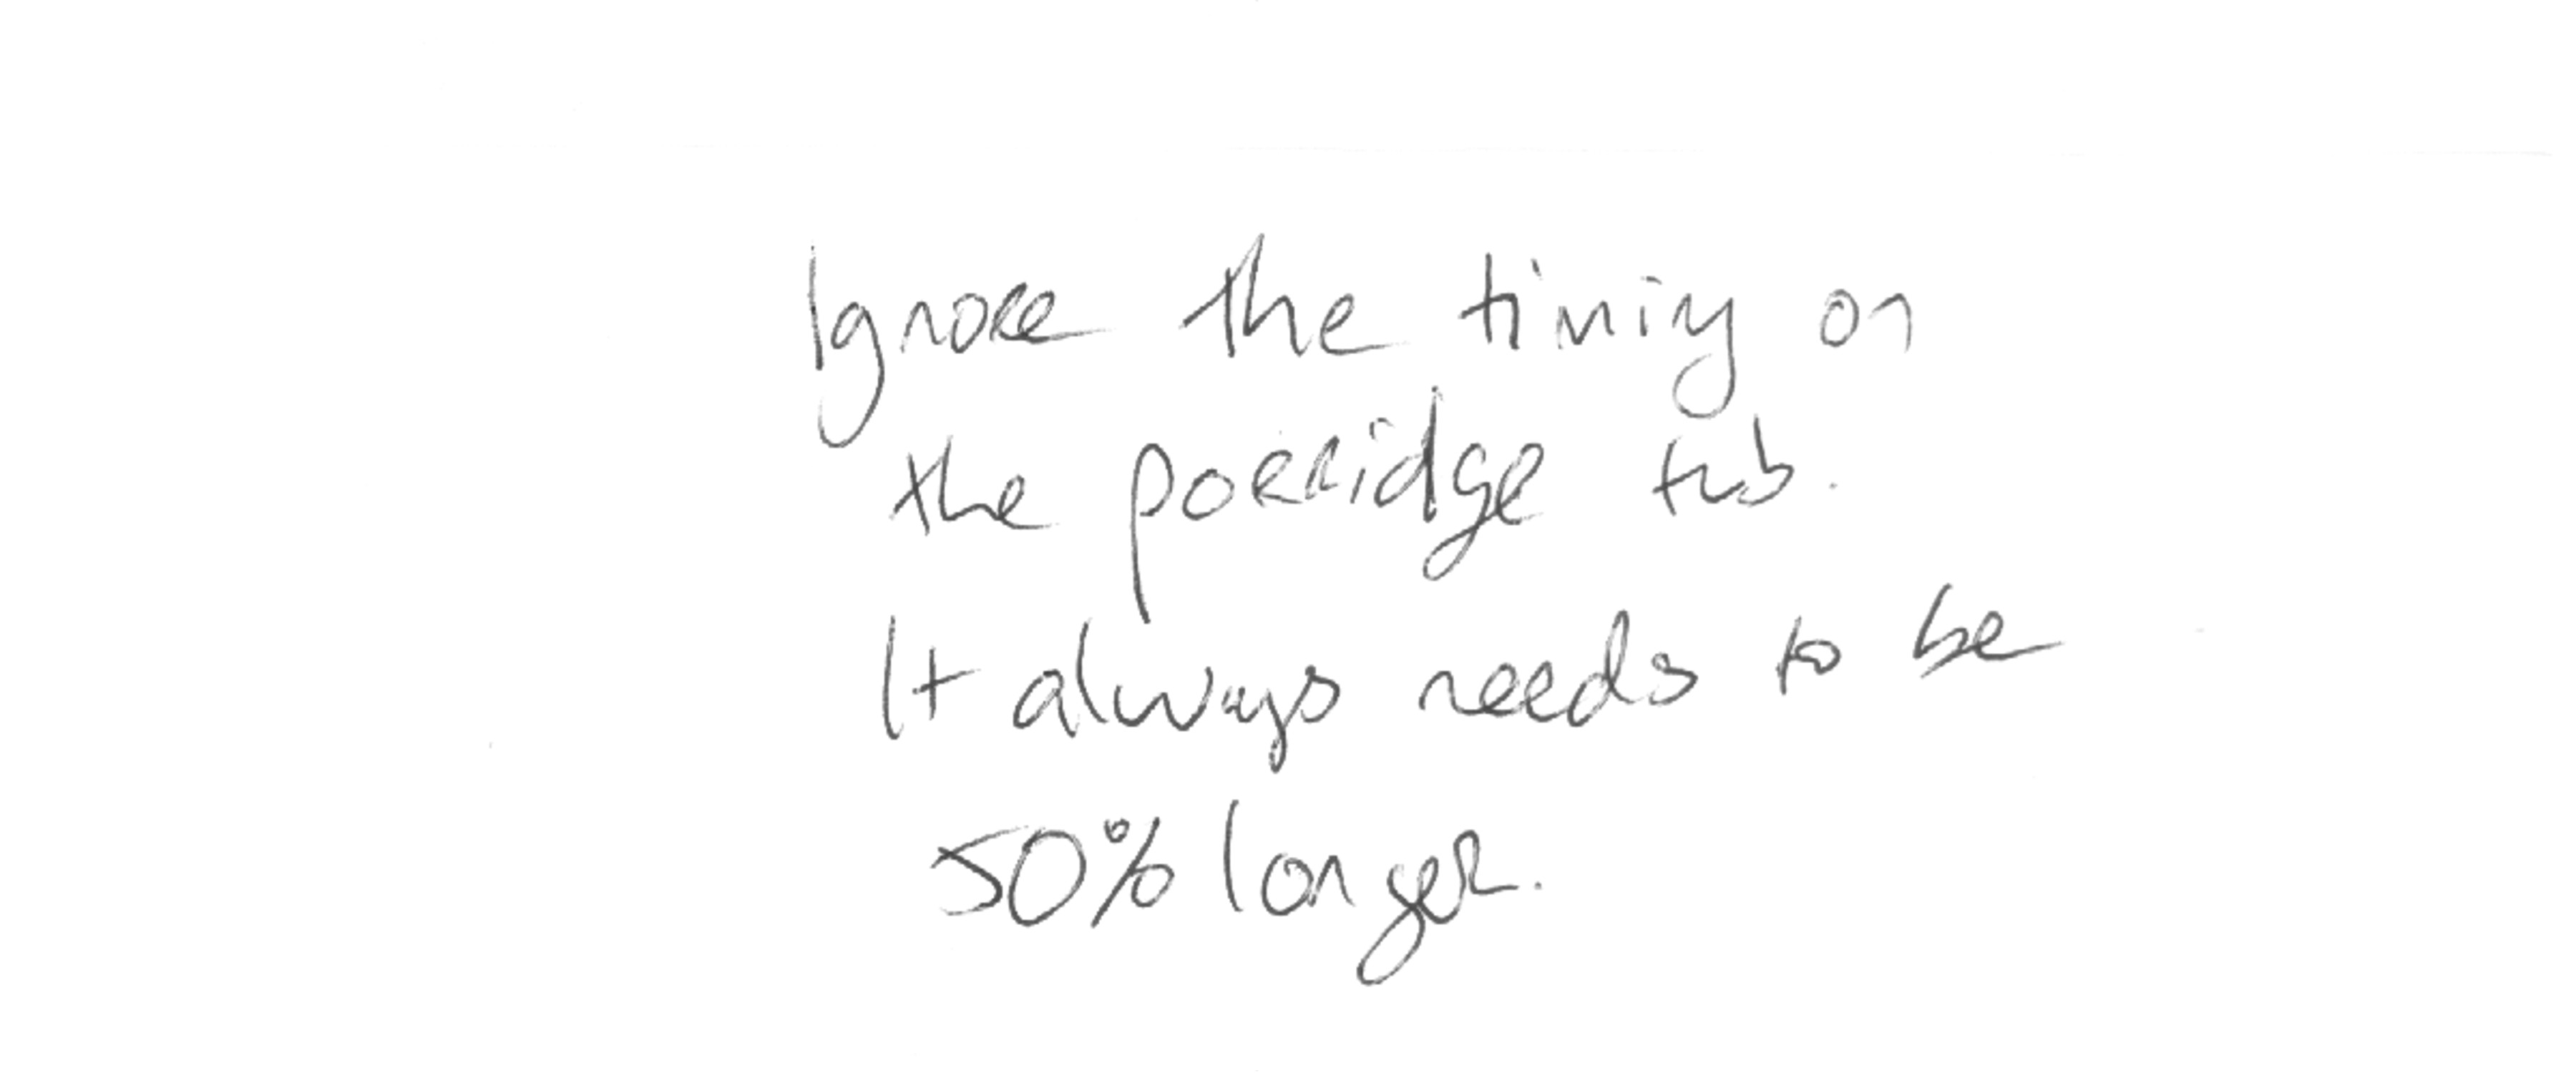 Ignore the timing on
the porridge tub.
It always needs to be
50% longer.